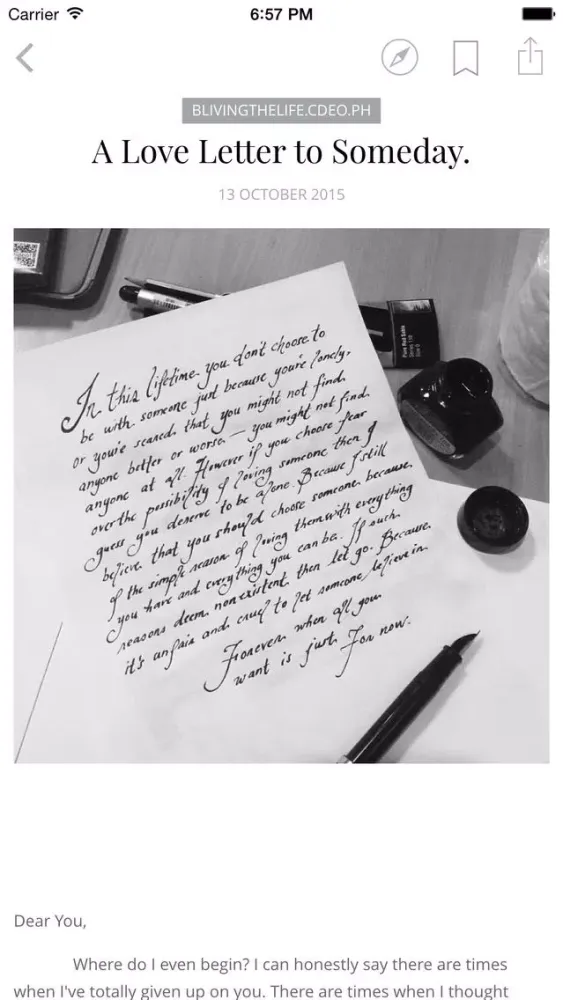 Carrier 6:57 PM
BLIVINGTHELIFE.CDEO.PH
A Love Letter to Someday.
13 OCTOBER 2015
In this lifetime you don't choose to
be with someone just because you're lonely,
or you're scared that you might not find
anyone better or worse — you might not find
anyone at all. However if you choose fear
over the possibility of loving someone then I
guess you deserve to be alone. Because I still
believe that you should choose someone because
of the simple reason of loving them with everything
you have and everything you can be. If such
reasons deem nonexistent then let go. Because
it's unfair and cruel to let someone believe in
Forever when all you
want is just For now.
Dear You,
Where do I even begin? I can honestly say there are times
when I've totally given up on you. There are times when I thought